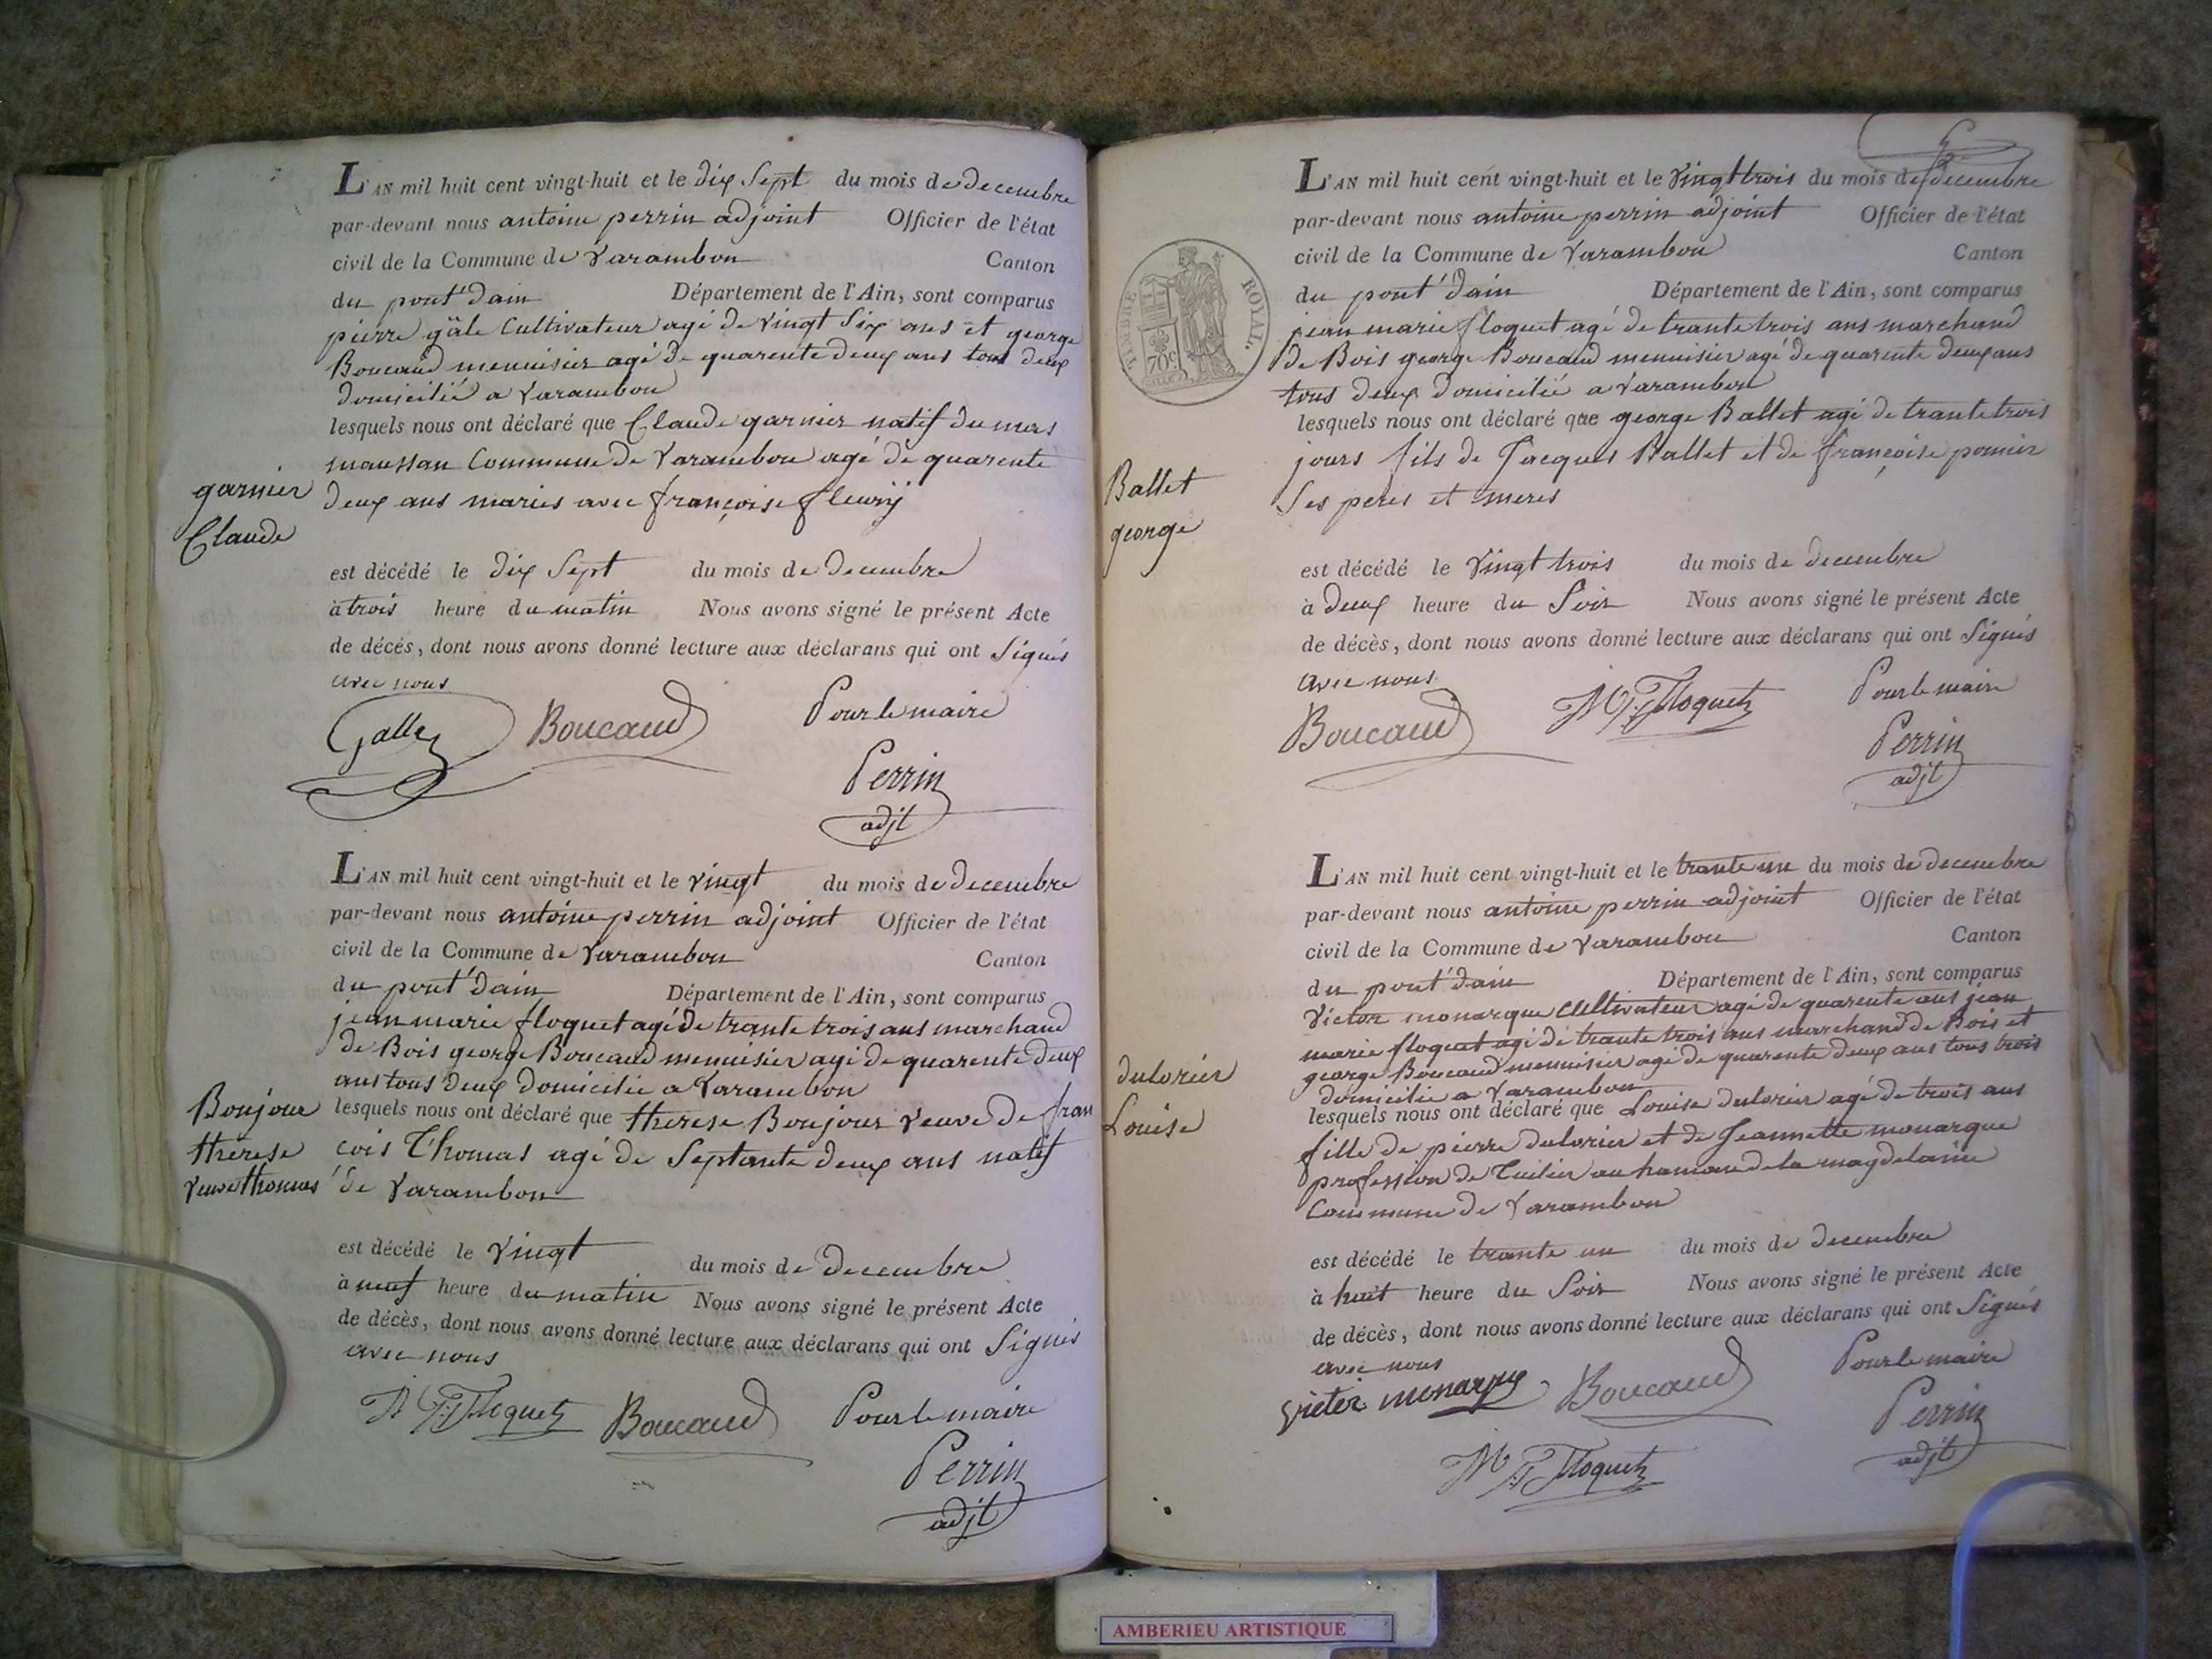 L'AN mil huit cent vingt-huit et le dix Sept du mois de decembre
par-devant nous antoine perrin adjoint Officier de l'état
civil de la Commune de Varambon Canton
du pont d'ain Département de l'Ain, sont comparus
pierre gäle Cultivateur agé de vingt Six ans et george
Boucaud menuisier agé de quarente deux ans tous deux
domicilié a Varambon
lesquels nous ont déclaré que Claude garnier natif du mas
maussan Commune de Varambon agé de quarente
deux ans maries avec françoise fleurij
garnier
Claude
est décédé le dix Sept du mois de decembre
à trois heure du matin Nous avons signé le présent Acte
de décès, dont nous avons donné lecture aux déclarans qui ont Signés
avec nous
Galle Boucaud Pour le maire
Perrin
adjt
L'AN mil huit cent vingt-huit et le vingt du mois de decembre
par-devant nous antoine perrin adjoint Officier de l'état
civil de la Commune de Varambon Canton
du pont d'ain Département de l'Ain, sont comparus
jean marie floquet agé de trante trois ans marchand
de Bois george Boucaud menuisier agé de quarente deux
ans tous deux domicilié a Varambon
lesquels nous ont déclaré que therese Bonjour veuve de fran
cois Thomas agé de Septante deux ans natif
de Varambon
Bonjour
thérèse
veuve thomas
est décédé le vingt du mois de decembre
à neuf heure du matin Nous avons signé le présent Acte
de décès, dont nous avons donné lecture aux déclarans qui ont Signés
avec nous
M Floquet Boucaud Pour le maire
Perrin
adjt
L'AN mil huit cent vingt-huit et le vingt trois du mois de decembre
par-devant nous antoine perrin adjoint Officier de l'état
civil de la Commune de Varambon Canton
du pont d'ain Département de l'Ain, sont comparus
jean marie floquet agé de trante trois ans marchand
de Bois george Boucaud menuisier agé de quarente deux ans
tous deux domicilié a Varambon
lesquels nous ont déclaré que george Ballet agé de trante trois
jours fils de Jacques Ballet et de françoise pomier
Ses peres et meres
TIMBRE ROYAL.
70c
Ballet
george
est décédé le vingt trois du mois de decembre
à deux heure du Soir Nous avons signé le présent Acte
de décès, dont nous avons donné lecture aux déclarans qui ont Signés
avec nous
Boucaud M Floquet Pour le maire
Perrin
adjt
L'AN mil huit cent vingt-huit et le trante un du mois de decembre
par-devant nous antoine perrin adjoint Officier de l'état
civil de la Commune de Varambon Canton
du pont d'ain Département de l'Ain, sont comparus
Victor monarque cultivateur agé de quarente ans jean
marie floquet agé de trante trois ans marchand de Bois et
george Boucaud menuisier agé de quarente deux ans tous trois
domicilié a Varambon
lesquels nous ont déclaré que Louise dulorier agé de trois ans
fille de pierre dulorier et de Jeannette monarque
profession de Tuilier au hamau de la magdelaine
Commune de Varambon
dulorier
Louise
est décédé le trante un du mois de decembre
à huit heure du Soir Nous avons signé le présent Acte
de décès, dont nous avons donné lecture aux déclarans qui ont Signés
avec nous
victer monarque Boucaud Pour le maire
M Floquet Perrin
adjt
AMBERIEU ARTISTIQUE